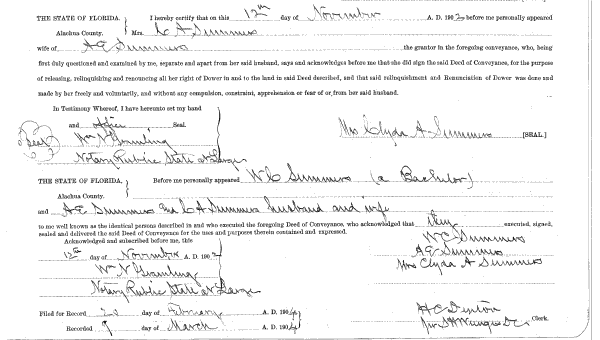 THE STATE OF FLORIDA, I hereby certify that on this 12th day of November A. D. 1902 before me personally appeared
Alachua County. Mrs. C A Summers
wife of A E Summers the grantor in the foregoing conveyance, who, being
first duly questioned and examined by me, separate and apart from her said husband, says and acknowledges before me that she did sign the said Deed of Conveyance, for the purpose
of releasing, relinquiring and renouncing all her right of Dower in and to the land in said Deed described, and that said relinquishment and Renunciation of Dower was done and
made by her freely and voluntarily, and without any compulsion, constraint, apprehension or fear of or from her said husband.
In Testimony Whereof, I have hereunto set my hand
and Seal.
Seal Wm N Gramling Mrs Clyda A Summers [SEAL.]
Notary Public State at Large
THE STATE OF FLORIDA, Before me personally appeared W C Summers (a Bachelor)
Alachua County.
and A E Summers and C A Summers husband and wife
to me well known as the identical persons described in and who executed the foregoing Deed of Conveyance, who acknowledged that they executed, signed,
sealed and delivered the said Deed of Conveyance for the uses and purposes therein contained and expressed.
Acknowledged and subscribed before me, this W C Summers
12th day of November A. D. 1902 A E Summers
Wm N Gramling Mrs Clyda A Summers
Notary Public State at Large
Filed for Record day of February A. D. 1904 H C Denton
Recorded 9 day of March A. D. 1904 Clerk.